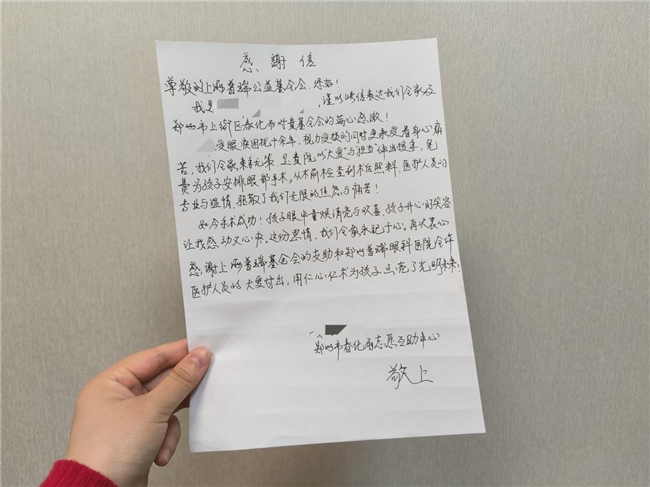 感謝信
尊敬的上海普瑞公益基金会,您好!
我是 ,谨以此信表达我们全家及
郑州市上街区春化雨对贵基金会的衷心感激!
受眼疾困扰十余年,视力受损的同时更承受着身心痛
苦,我们全家束手无策 是贵院以"大爱"与担当"伸出援手,免
费为孩子安排眼部手术。从术前检查到术后照料,医护人员的
专业与温情,驱散了我们无限的焦虑与痛苦!
如今手术成功!孩子眼中重燃清亮与欢喜,孩子开心的笑容
让我感动又心疼。这份恩情,我们全家永记于心。再次衷心
感谢上海普瑞基金会的支助和郑州普瑞眼科医院全体
医护人员的大爱付出,用仁心仁术为孩子点亮了光明未来!
郑州市春化雨志愿互助中心
敬上